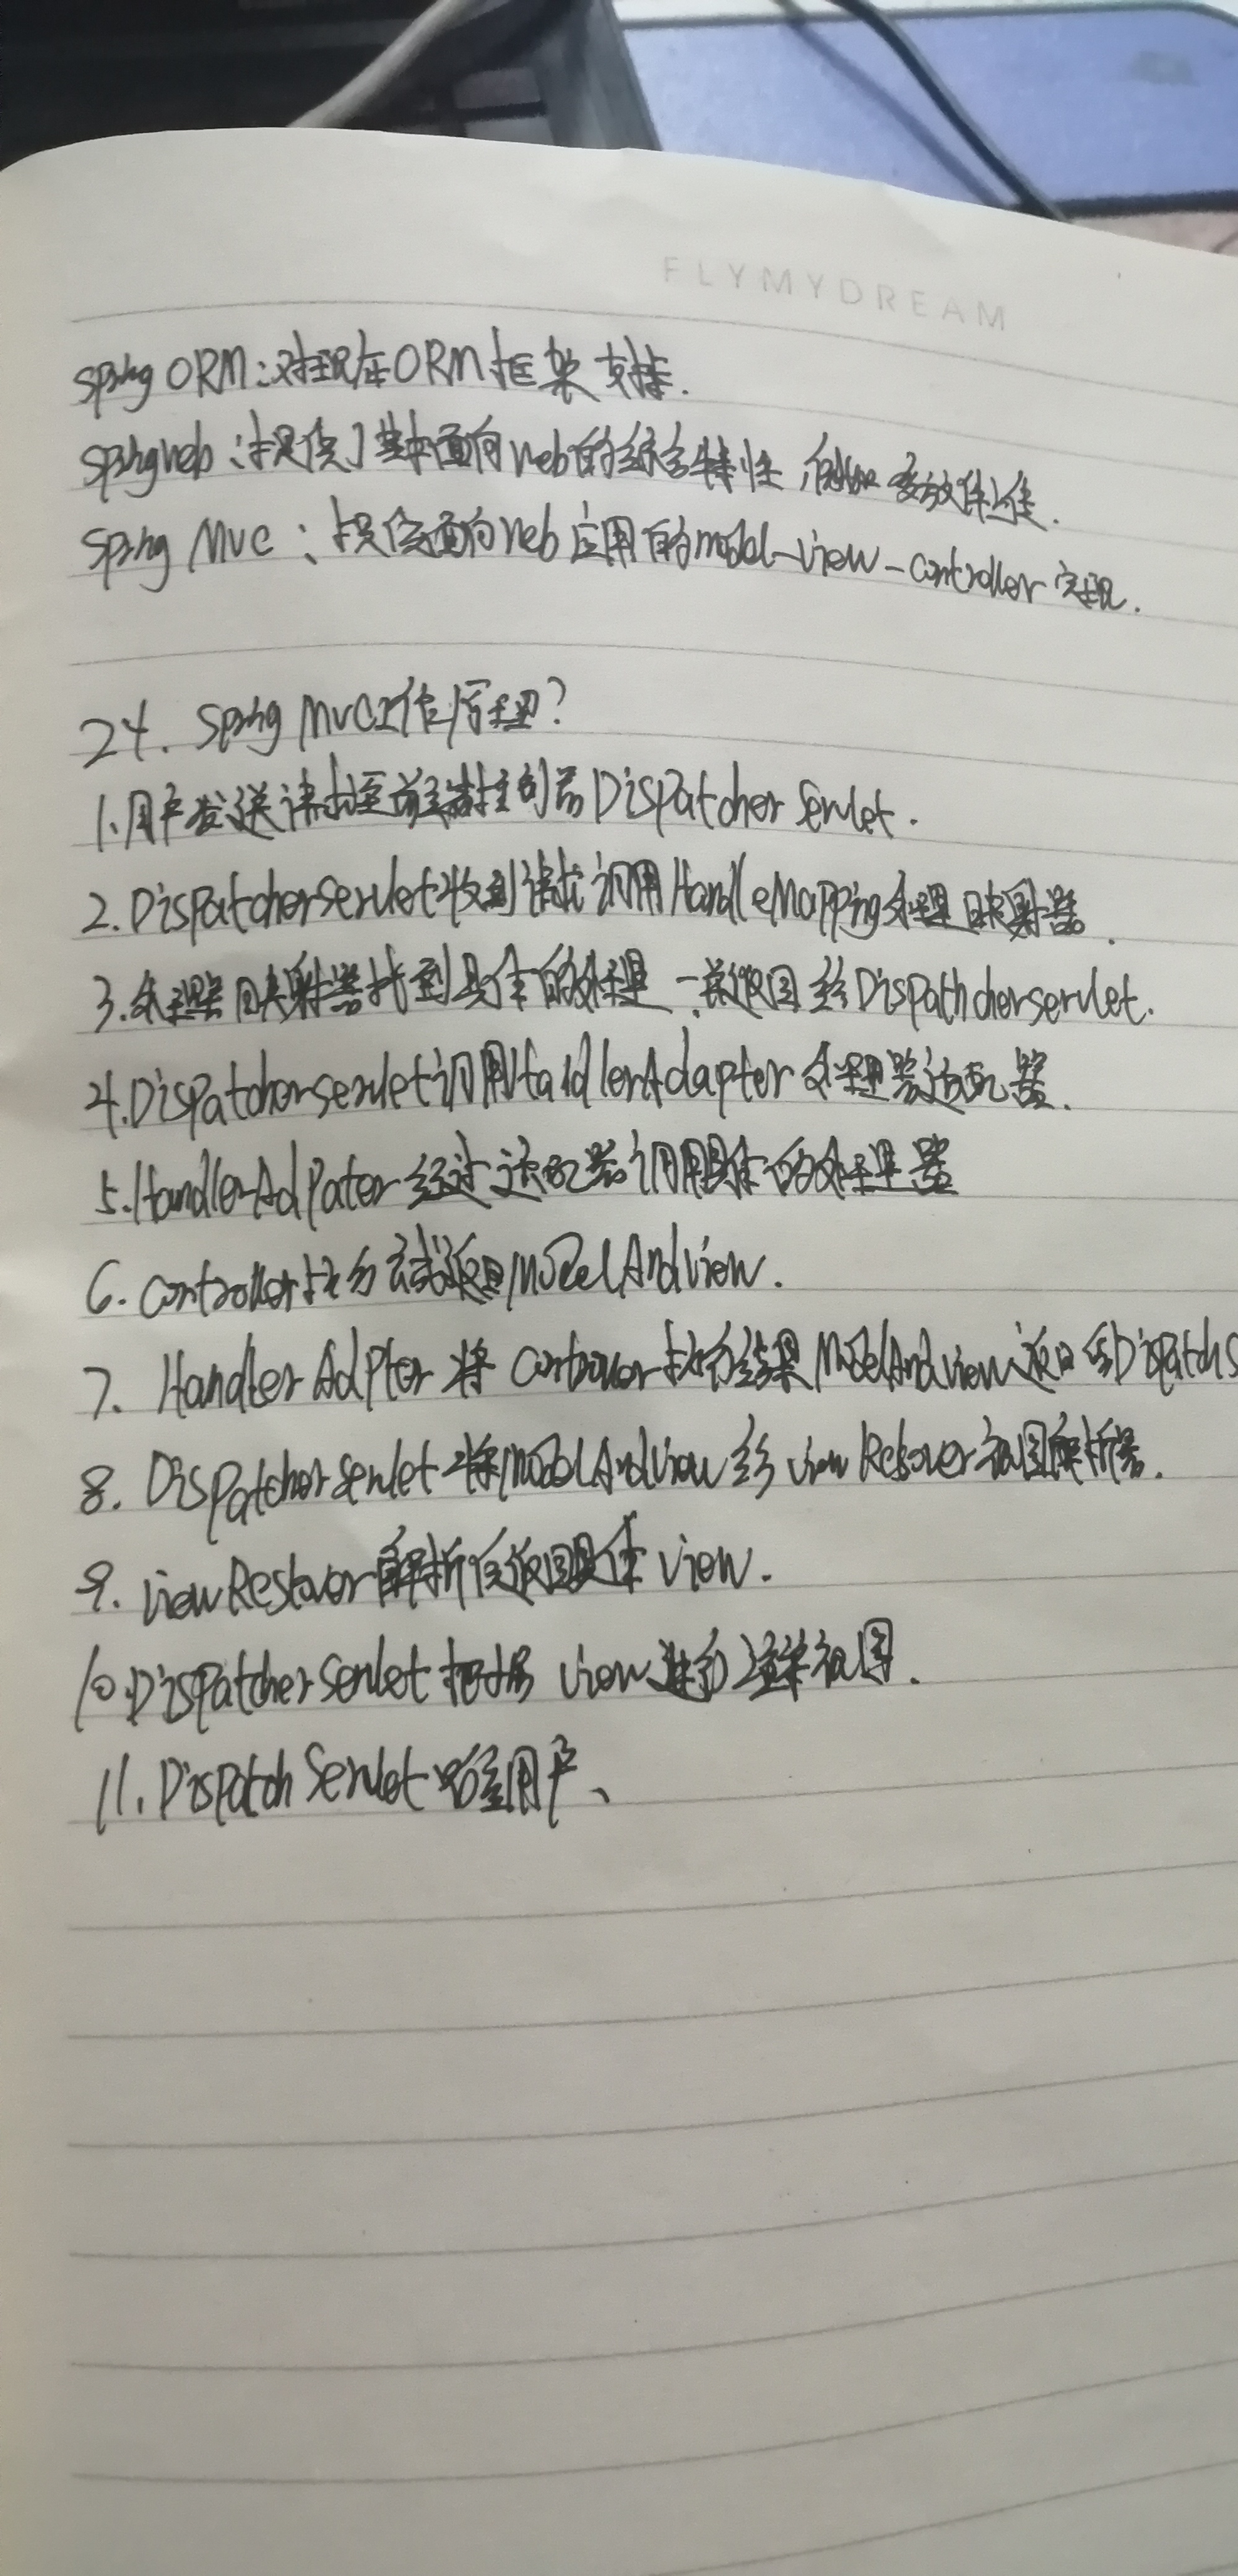 FLYMYDREAM
Spring ORM:对现在ORM框架支持.
Spring web:提供了基本面向web的综合特性,例如多放件上传.
Spring MVC:提供面向Web应用的model-view-controller实现.
24. Spring MVC工作原理?
1.用户发送请求至前端控制器DispatcherServlet.
2.DispatcherServlet收到请求调用HandleMapping处理映射器.
3.处理器映射器找到具体的处理 一并返回给Dispathcherservlet.
4.Dispatcherservlet调用HandlerAdapter处理器适配器.
5.HandlerAdPater经过适配器调用具体的处理器
6. Controller执行 返回ModelAndView.
7. Handler AdPter 将 Controller执行结果ModelAndview返回给Dispatchs
8. Dispatcherservlet将ModelAndView给 view Resover视图解析器.
9. viewRestover解析后返回具体view.
10.DispatcherServlet view进行 视图.
11.DispatchServlet 用户、